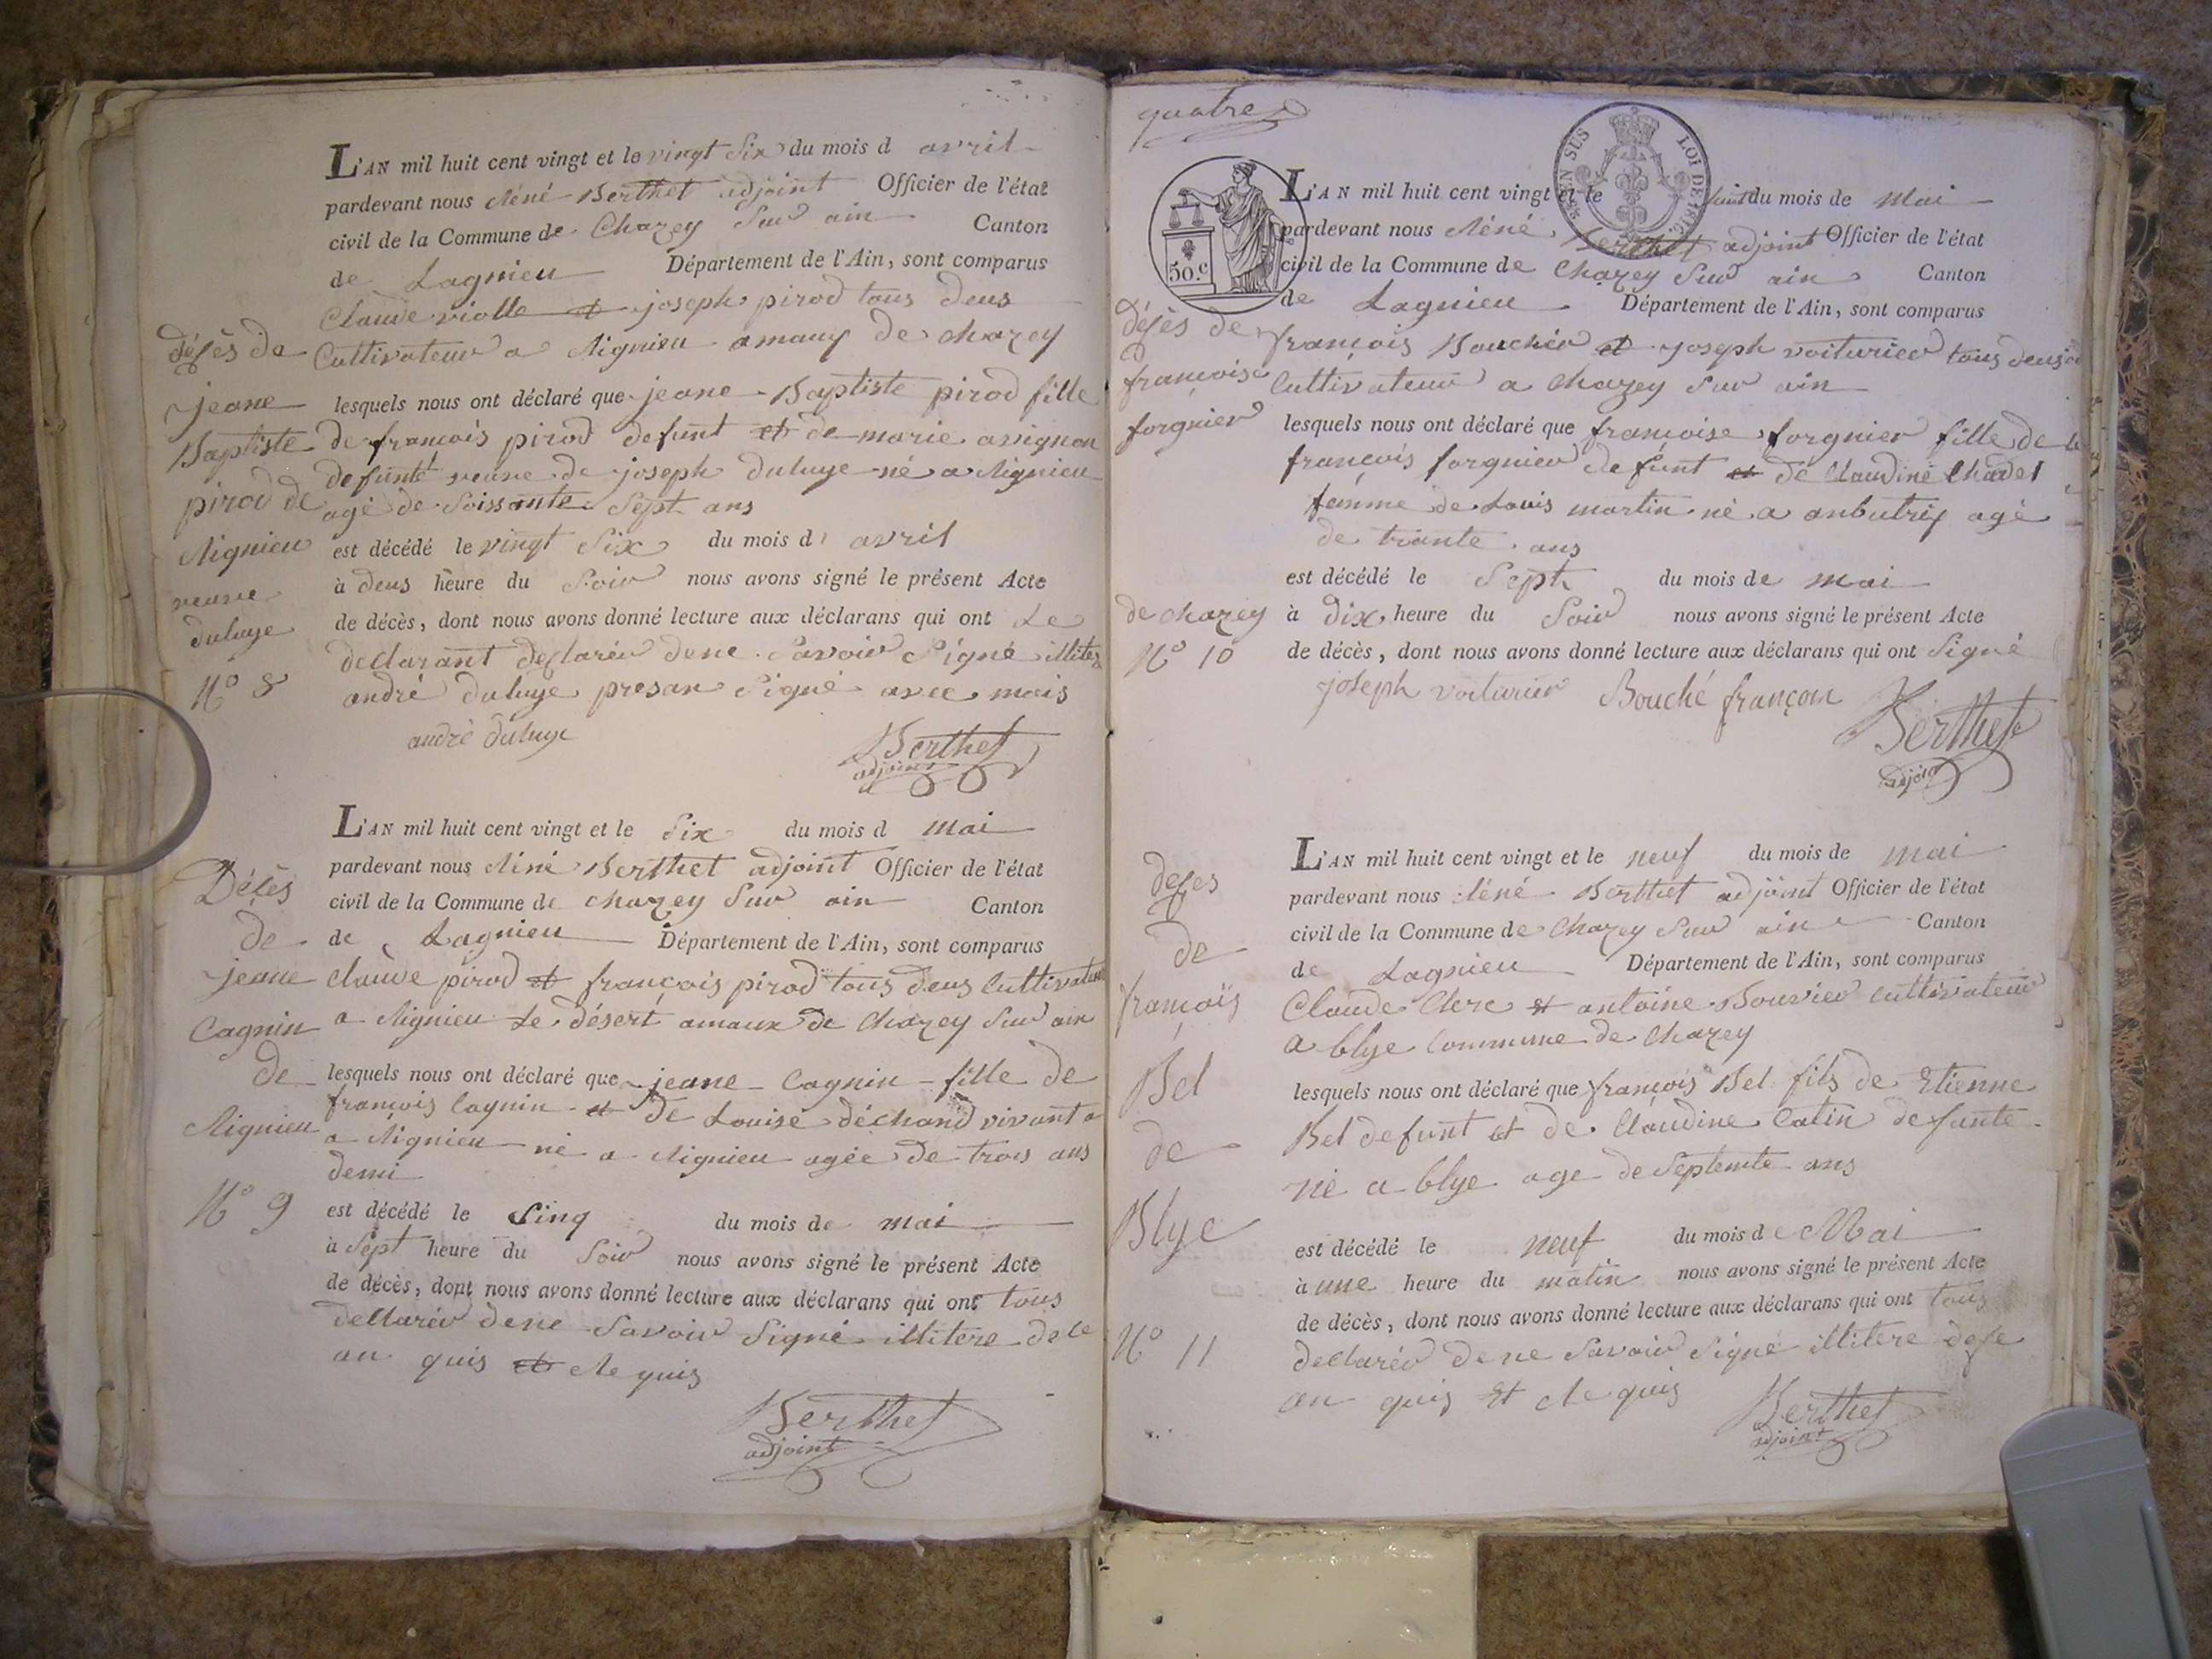 L'AN mil huit cent vingt et le vingt six du mois d avril
pardevant nous Réné Berthet adjoint Officier de l'état
civil de la Commune de Chazey Sur ain Canton
de Lagnieu Département de l'Ain, sont comparus
Claude violle et joseph pirod tous deus
Cultivateur a Rignieu amaux de chazey
désès de
jeane
Baptiste
pirod de
Rignieu
veuve
duluye
N° 8
lesquels nous ont déclaré que jeane Baptiste pirod fille
de françois pirod defunt et de marie
defunte veuve de joseph duluye né a Rignieu
agé de soissante sept ans
est décédé le vingt six du mois d avril
à deus heure du Soir nous avons signé le présent Acte
de décès, dont nous avons donné lecture aux déclarans qui ont Le
declarant declarér dene Savoir Signé
andré duluye presan Signé avec mois
andré duluye
Berthet
adjoint
L'AN mil huit cent vingt et le Six du mois d mai
pardevant nous Réné Berthet adjoint Officier de l'état
civil de la Commune de chazey Sur ain Canton
de Lagnieu Département de l'Ain, sont comparus
claude pirod et françois pirod tous deus Cultivateur
a Rignieu Le désert amaux de Chazey Sur ain
Désès
de
jeane
Cagnin
de
Rignieu
N° 9
lesquels nous ont déclaré que jeane Cagnin fille de
françois Cagnin et de Louise déchand vivant a
a Rignieu né a Rignieu agée de trois ans
demi
est décédé le Sinq du mois de mai
à Sept heure du Soir nous avons signé le présent Acte
de décès, dont nous avons donné lecture aux déclarans qui ont tous
declarér dene Savoir Signé illitere de ce
an quis et Requis
Berthet
adjoint
quatre
TIMBRE
50.c
EN SUS
LOI DE 1816
L'AN mil huit cent vingt et le huit du mois de mai
pardevant nous Réné Berthet adjoint Officier de l'état
civil de la Commune de Chazey Sur ain Canton
de Lagnieu Département de l'Ain, sont comparus
françois Bouchér et joseph voiturier tous deus
Cultivateur a chazey Sur ain
désès de
françoise
forgnier
de chazey
N° 10
lesquels nous ont déclaré que françoise forgnier fille de
françois forgnier defunt et de Claudine Chadel
femme de Louis martin né a anbutrix agé
de trante ans
est décédé le Sept du mois de mai
à dix heure du Soir nous avons signé le présent Acte
de décès, dont nous avons donné lecture aux déclarans qui ont Signé
joseph voiturier Bouché françois
Berthet
adjoint
L'AN mil huit cent vingt et le neuf du mois de mai
pardevant nous Réné Berthet adjoint Officier de l'état
civil de la Commune de Chazey Sur ain Canton
de Lagnieu Département de l'Ain, sont comparus
Claude Clerc et antoine Bouvier cultivateur
a blye Commune de Chazey
deses
de
françois
Bel
de
Blye
N° 11
lesquels nous ont déclaré que françois Bel fils de Etienne
Bel defunt et de Claudine Catin defunte
né a blye age de Septente ans
est décédé le neuf du mois de Mai
à une heure du matin nous avons signé le présent Acte
de décès, dont nous avons donné lecture aux déclarans qui ont tous
declarér de ne Savoir Signé illitere de se
an quis et Requis
Berthet
adjoint